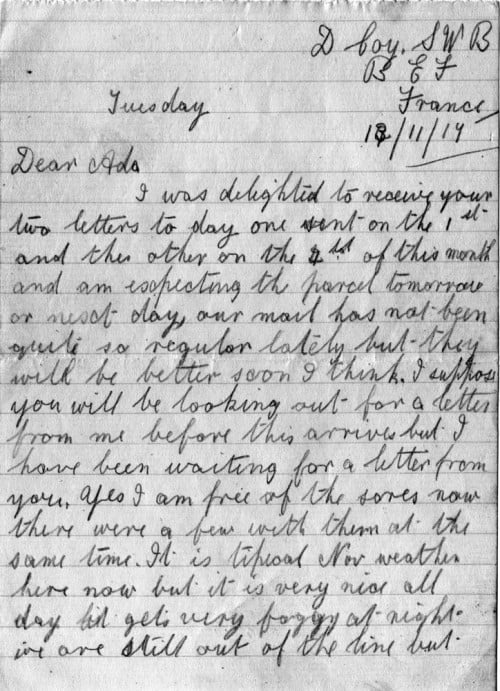 D Coy. S W B
B E F
France
Tuesday
13/11/17
Dear Ada
I was delighted to receive your
two letters to day one sent on the 1st
and the other on the 4st of this month
and am expecting the parcel tomorrow
or next day, our mail has not been
quite so regular lately but they
will be better soon I think. I suppose
you will be looking out for a letter
from me before this arrives but I
have been waiting for a letter from
you. Yes I am free of the sores now
there were a few with them at the
same time. It is tipical Nov weather
here now but it is very nice all
day gets very foggy at night
we are still out of the line but